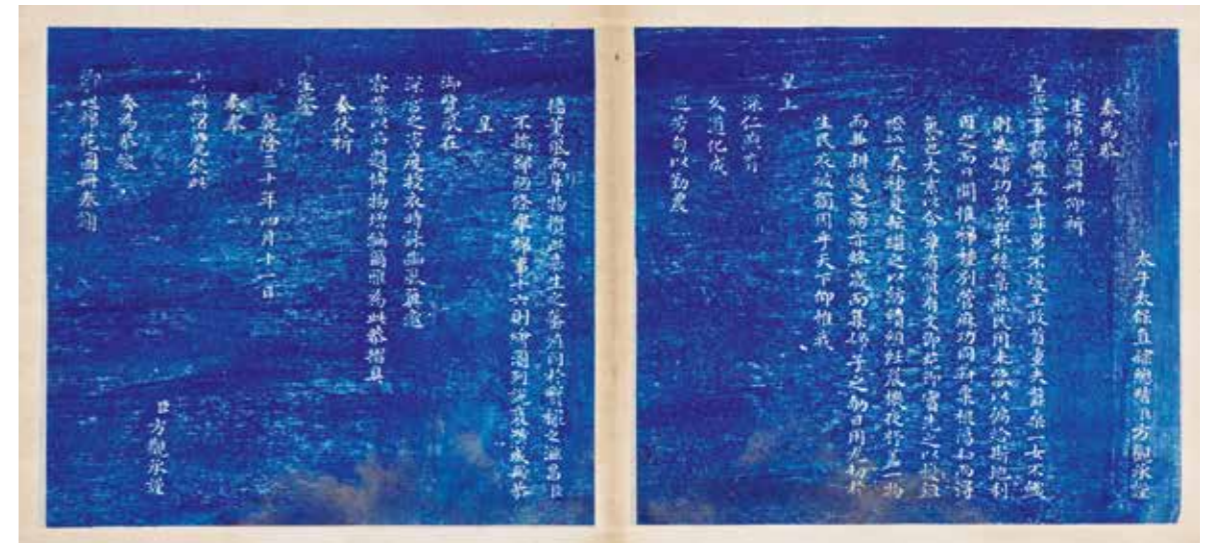 太子太保直隸總督臣方觀承謹
奏為恭
進棉花圖冊仰祈
聖鑒事竊惟五十非帛不煖王政首重夫蠶桑一女不織
則寒婦功莫亟於絲枲然民用未能以徧給斯地利
因之而日開惟棉種別菅麻功同菽粟根陰和而得
氣苞大素以含章有質有文即花即實先之以耰鉏
春種夏耘繼之以紡績組紝晨機夜杼蓋一物
而兼耕織之務亦終歲而集婦子之勤日用尤切於
生民衣被獨周乎天下仰惟我
皇上
深仁煦育
久道化成
巡芳甸以勤農
播薰風而阜物 生之蕃殖同於 之滋昌臣
不揣鄙昧條舉棉事十六則繪圖列說裝潢成冊恭
呈
御覽 在
深宮之 衣時詠豳風
以 博物 為此恭摺具
奏伏祈
聖鑒
乾隆三十年四月十一日
奏奉
奏為恭繳
御題棉花圖冊恭 
臣方觀承謹